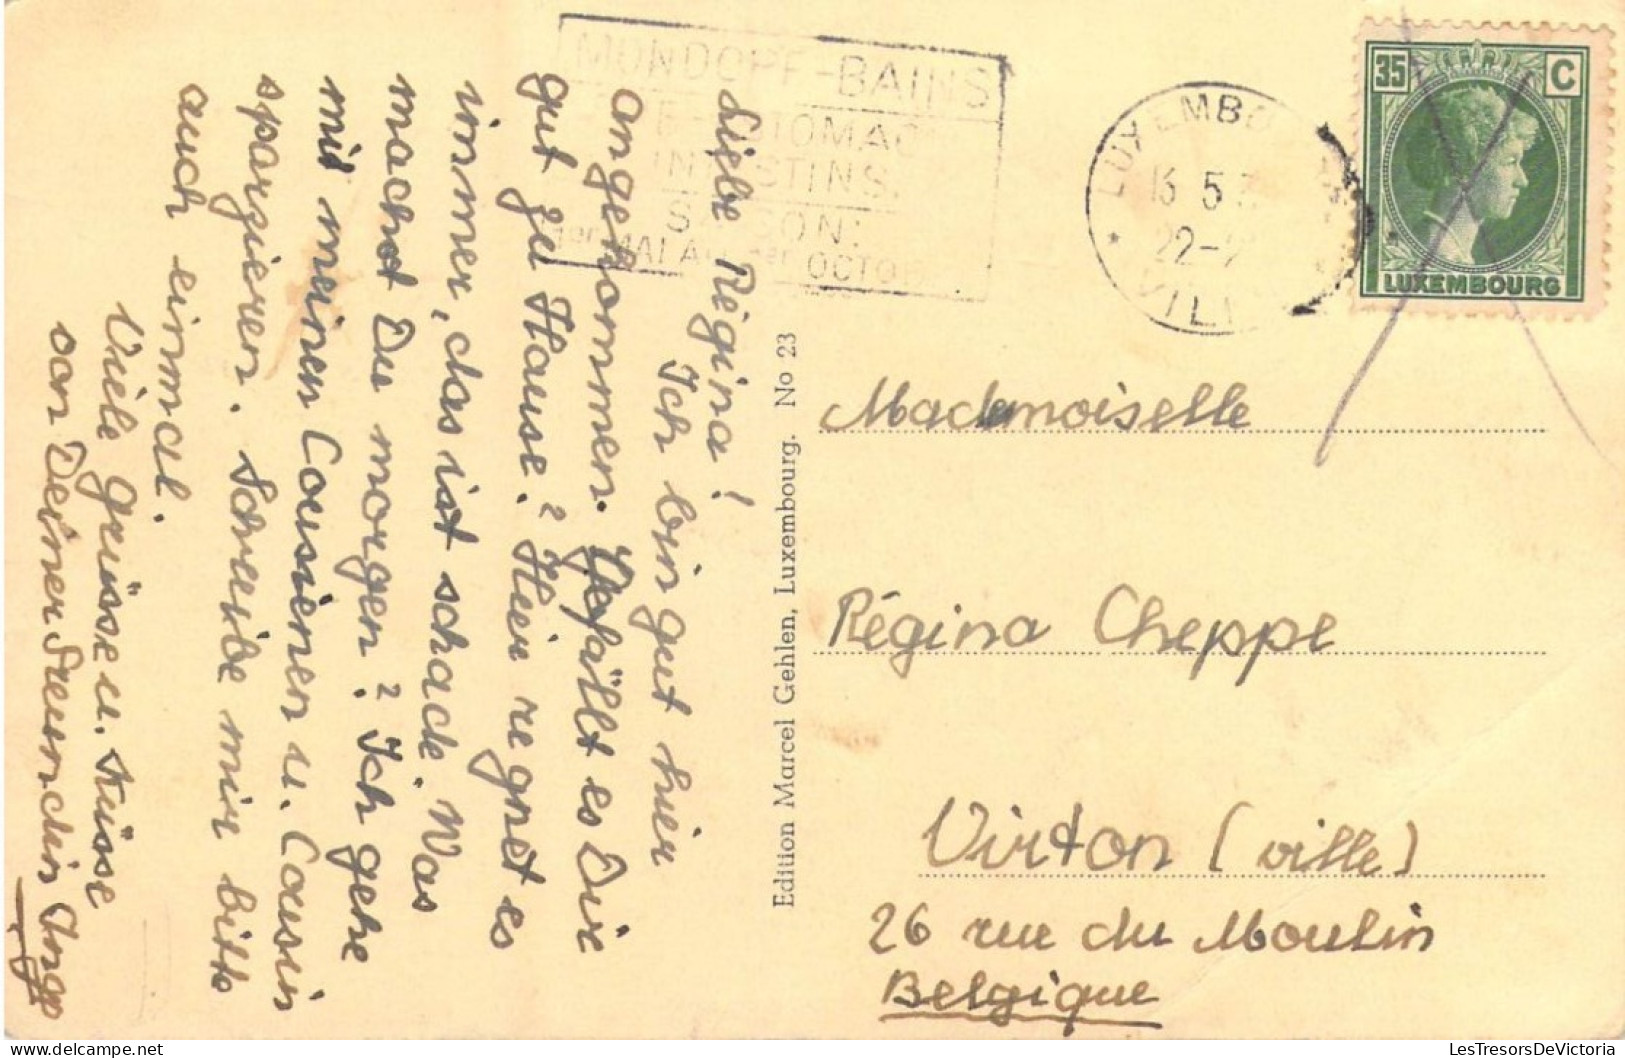 MONDORF-BAINS
STOMAC
INTESTINS.
SAISON:
1er MAI AU 1er OCTOB
LUXEMBO
VILLE
22-
35 C
LUXEMBOURG
Liebe Régina!
Ich bin gut hier
angekommen. Gefällt es Dir
gut zu Hause? Hier regnet es
immer, das ist schade. Was
machst Du morgen? Ich gehe
mit meinen Cousienen u. Cousin
sparzieren. Schreibe mir bitte
auch einmal.
Viele Grüsse u. Küsse
von Deiner Freundin Inge
Edition Marcel Gehlen, Luxembourg. No 23
Mademoiselle
Régina Cheppe
Virton (ville)
26 rue du Moulin
Belgique
LesTresorsDeVictoria